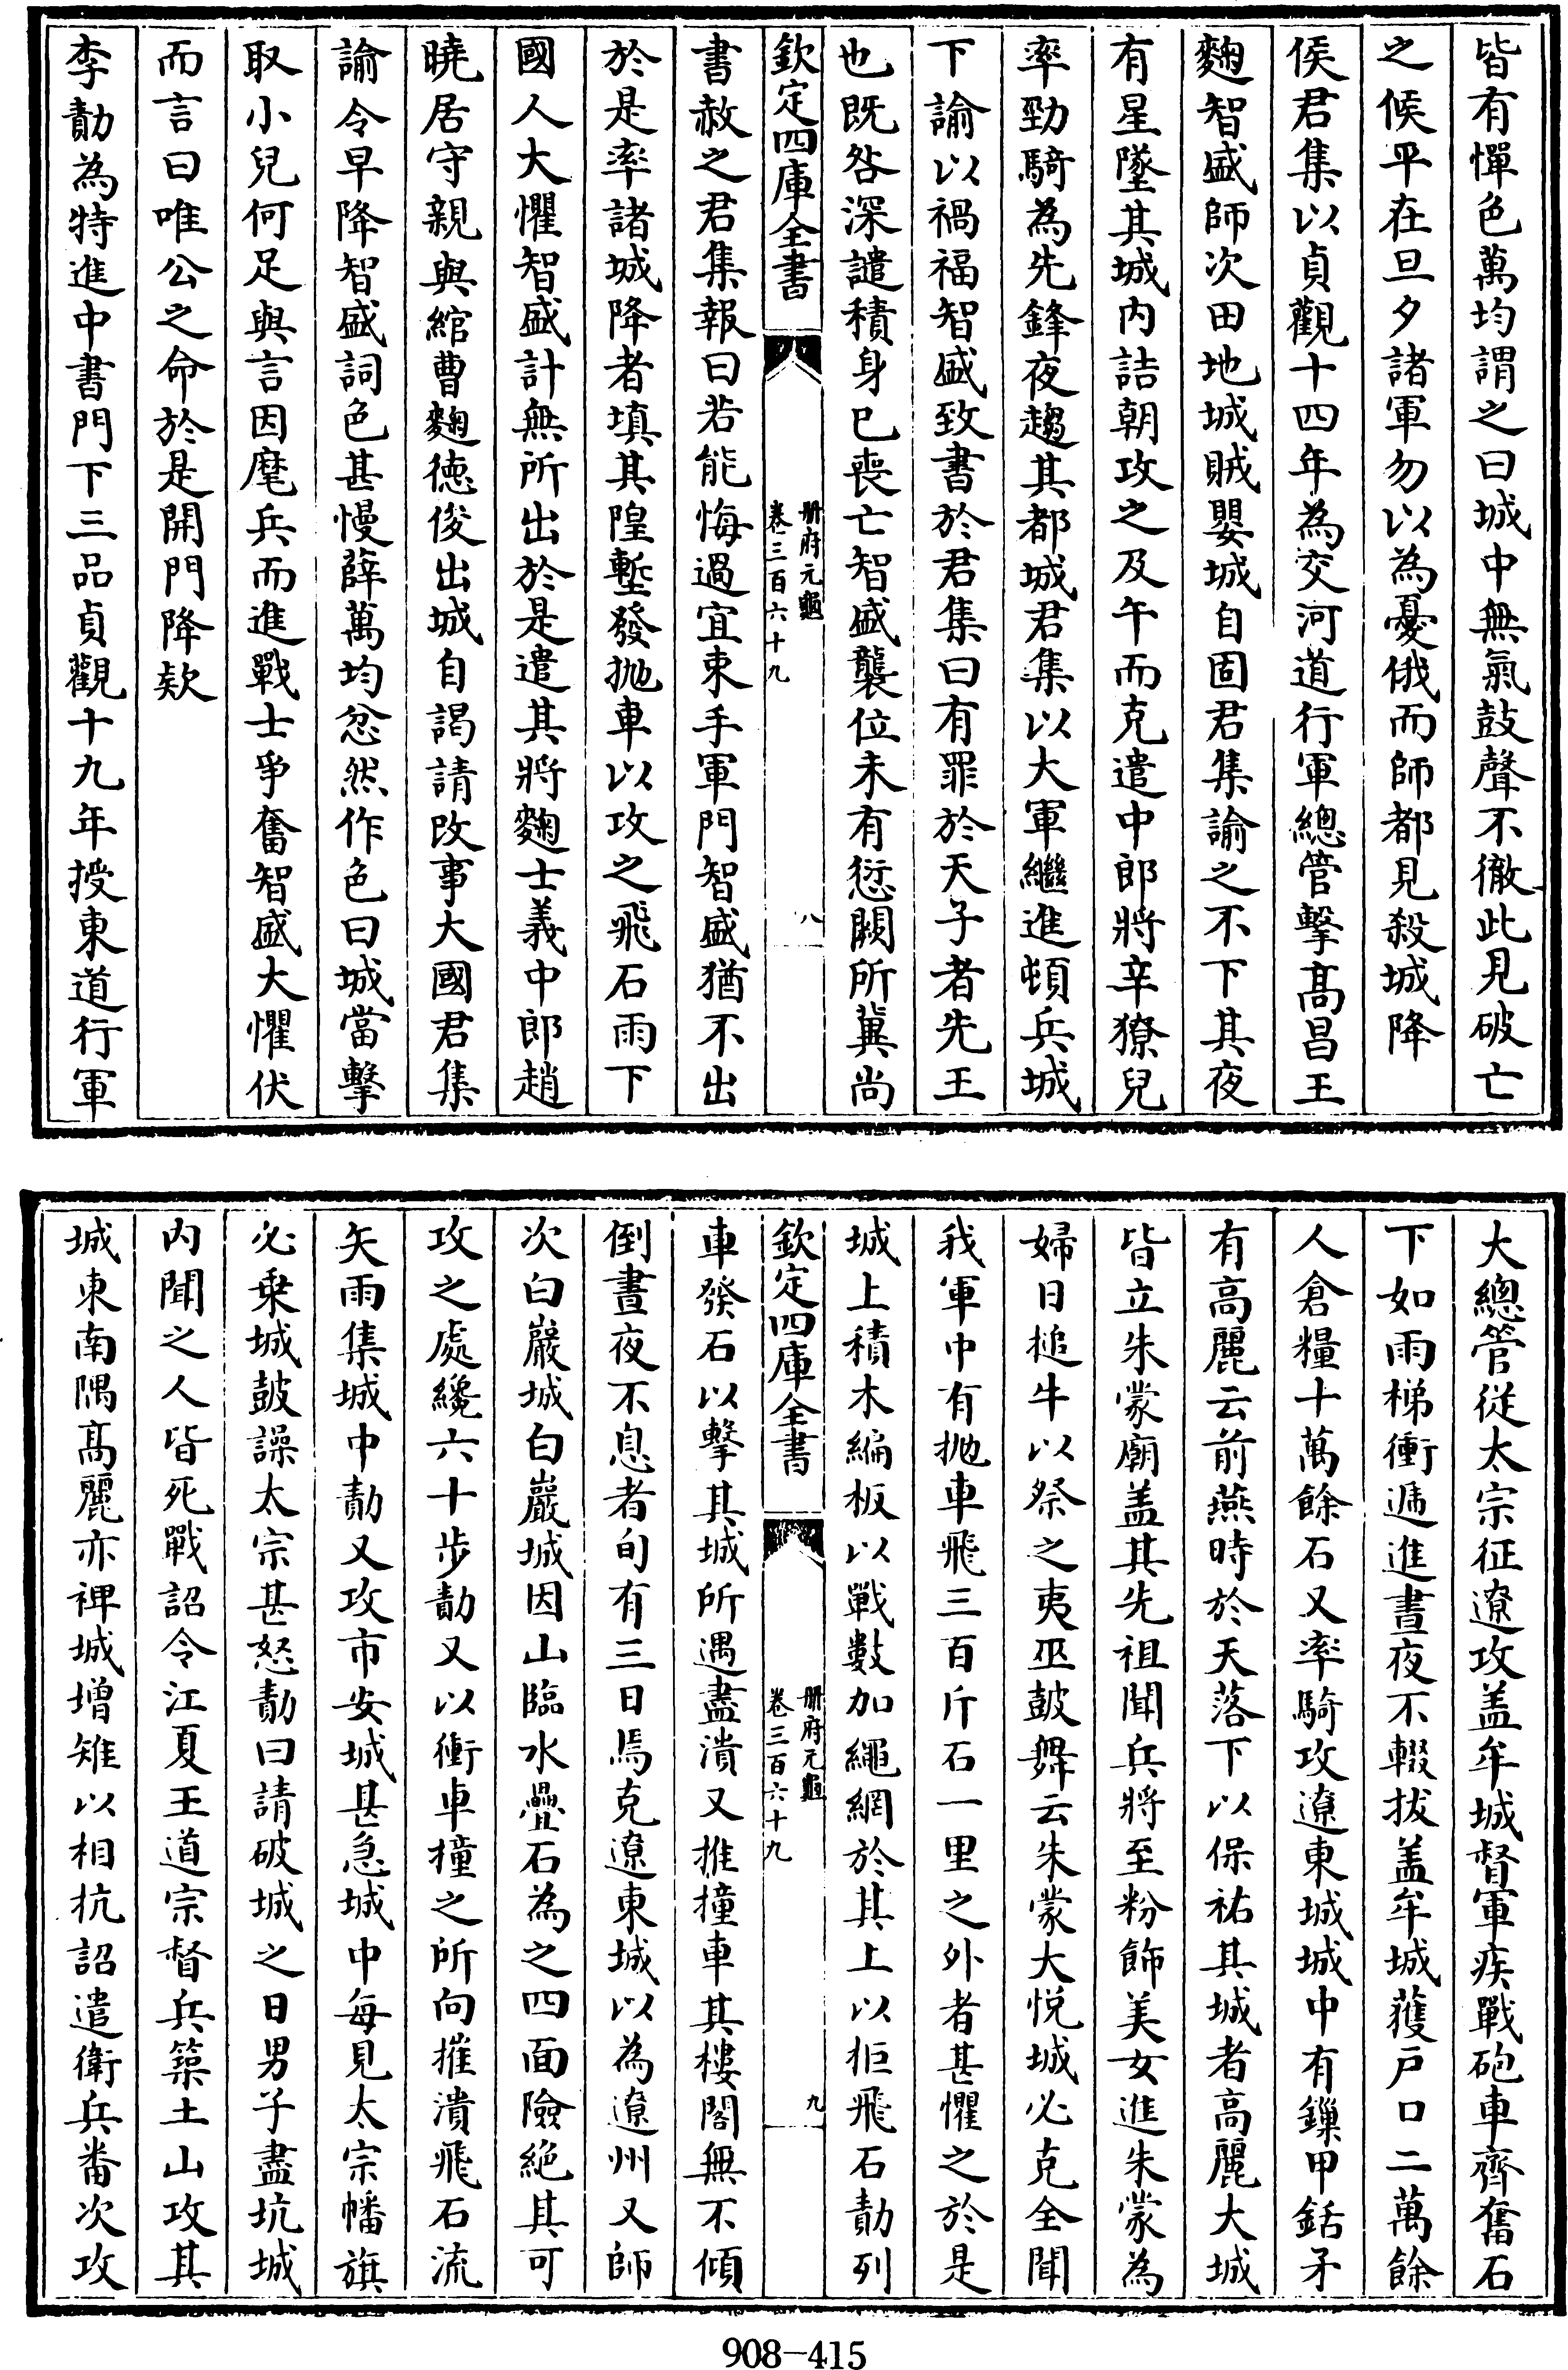 皆有憚色萬均謂之曰城中無氣鼓聲不徹此見破亡
之候平在旦夕諸軍勿以為憂俄而師都見殺城降
侯君集以貞觀十四年為交河道行軍總管擊髙昌王
麴智盛師次田地城賊嬰城自固君集諭之不下其夜
有星墜其城内詰朝攻之及午而克遣中郎將辛獠兒
率勁騎為先鋒夜趨其都城君集以大軍繼進頓兵城
下諭以禍福智盛致書於君集曰有罪於天子者先王
也既咎深譴積身已喪亡智盛襲位未有愆闕所冀尚
欽定四庫全書
册府元龜
卷三百六十九
八
書赦之君集報曰若能悔過宜束手軍門智盛猶不出
於是率諸城降者填其隍塹發抛車以攻之飛石雨下
國人大懼智盛計無所出於是遣其將麴士義中郎趙
曉居守親與綰曹麴德俊出城自謁請改事大國君集
諭令早降智盛詞色甚慢薛萬均忿然作色曰城當擊
取小兒何足與言因麾兵而進戰士爭奮智盛大懼伏
而言曰唯公之命於是開門降欵
李勣為特進中書門下三品貞觀十九年授東道行軍
大總管從太宗征遼攻盖牟城督軍疾戰砲車齊奮石
下如雨梯衝遞進晝夜不輟拔盖牟城獲戸口二萬餘
人倉糧十萬餘石又率騎攻遼東城城中有鏁甲銛矛
有高麗云前燕時於天落下以保祐其城者高麗大城
皆立朱蒙廟盖其先祖聞兵將至粉飾美女進朱蒙為
婦日搥牛以祭之夷巫鼓舞云朱蒙大悦城必克全聞
我軍中有抛車飛三百斤石一里之外者甚懼之於是
城上積木編板以戰數加繩網於其上以拒飛石勣列
欽定四庫全書
册府元龜
卷三百六十九
九
車發石以擊其城所遇盡潰又推撞車其樓閣無不傾
倒晝夜不息者旬有三日焉克遼東城以為遼州又師
次白巖城白巖城因山臨水疊石為之四面險絶其可
攻之處纔六十步勣又以衝車撞之所向摧潰飛石流
矢雨集城中勣又攻市安城甚急城中每見太宗幡旗
必乗城鼓譟太宗甚怒勣曰請破城之日男子盡坑城
内聞之人皆死戰詔令江夏王道宗督兵築土山攻其
城東南隅髙麗亦裨城增雉以相抗詔遣衛兵畨次攻
908-415